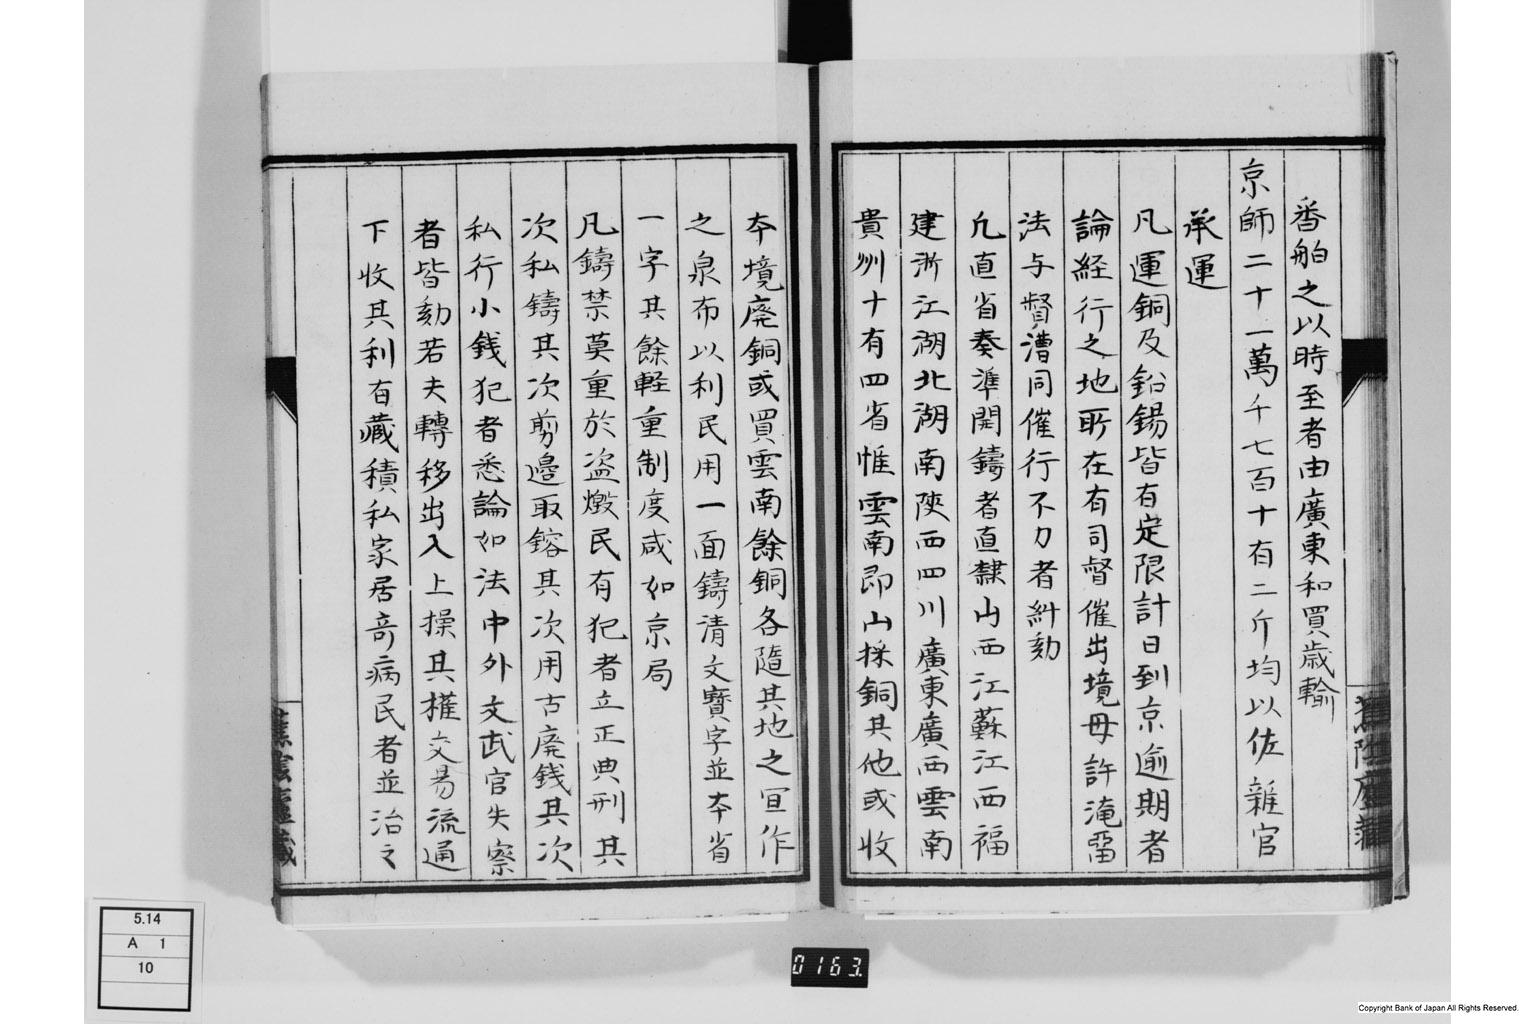 番舶之以時至者由廣東和買歳輸
京師二十一萬千七百十有二斤均以佐雜官
承運
凡運銅及鉛錫皆有定限計日到京逾期者
論経行之地所在有司督催出境毋許淹畱
法与督漕同催行不力者糾劾
凡直省奏準開鑄者直隸山西江蘇江西福
建浙江湖北湖南陝西四川廣東廣西雲南
貴州十有四省惟雲南即山採銅其他或收
本境廃銅或買雲南餘銅各隨其地之宜作
之泉布以利民用一面鑄清文寶字並本省
一字其餘軽重制度咸如京局
凡鑄禁莫重於盗燬民有犯者立正典刑其
次私鑄其次剪邉取鎔其次用古廃銭其次
私行小銭犯者悉論如法中外文武官失察
者皆劾若夫轉移出入上操其權交易流通
下收其利有藏積私家居竒病民者並治之
蕉陰廬藏
蕉陰廬藏
5.14
A 1
10
0163.
Copyright Bank of Japan All Rights Reserved.